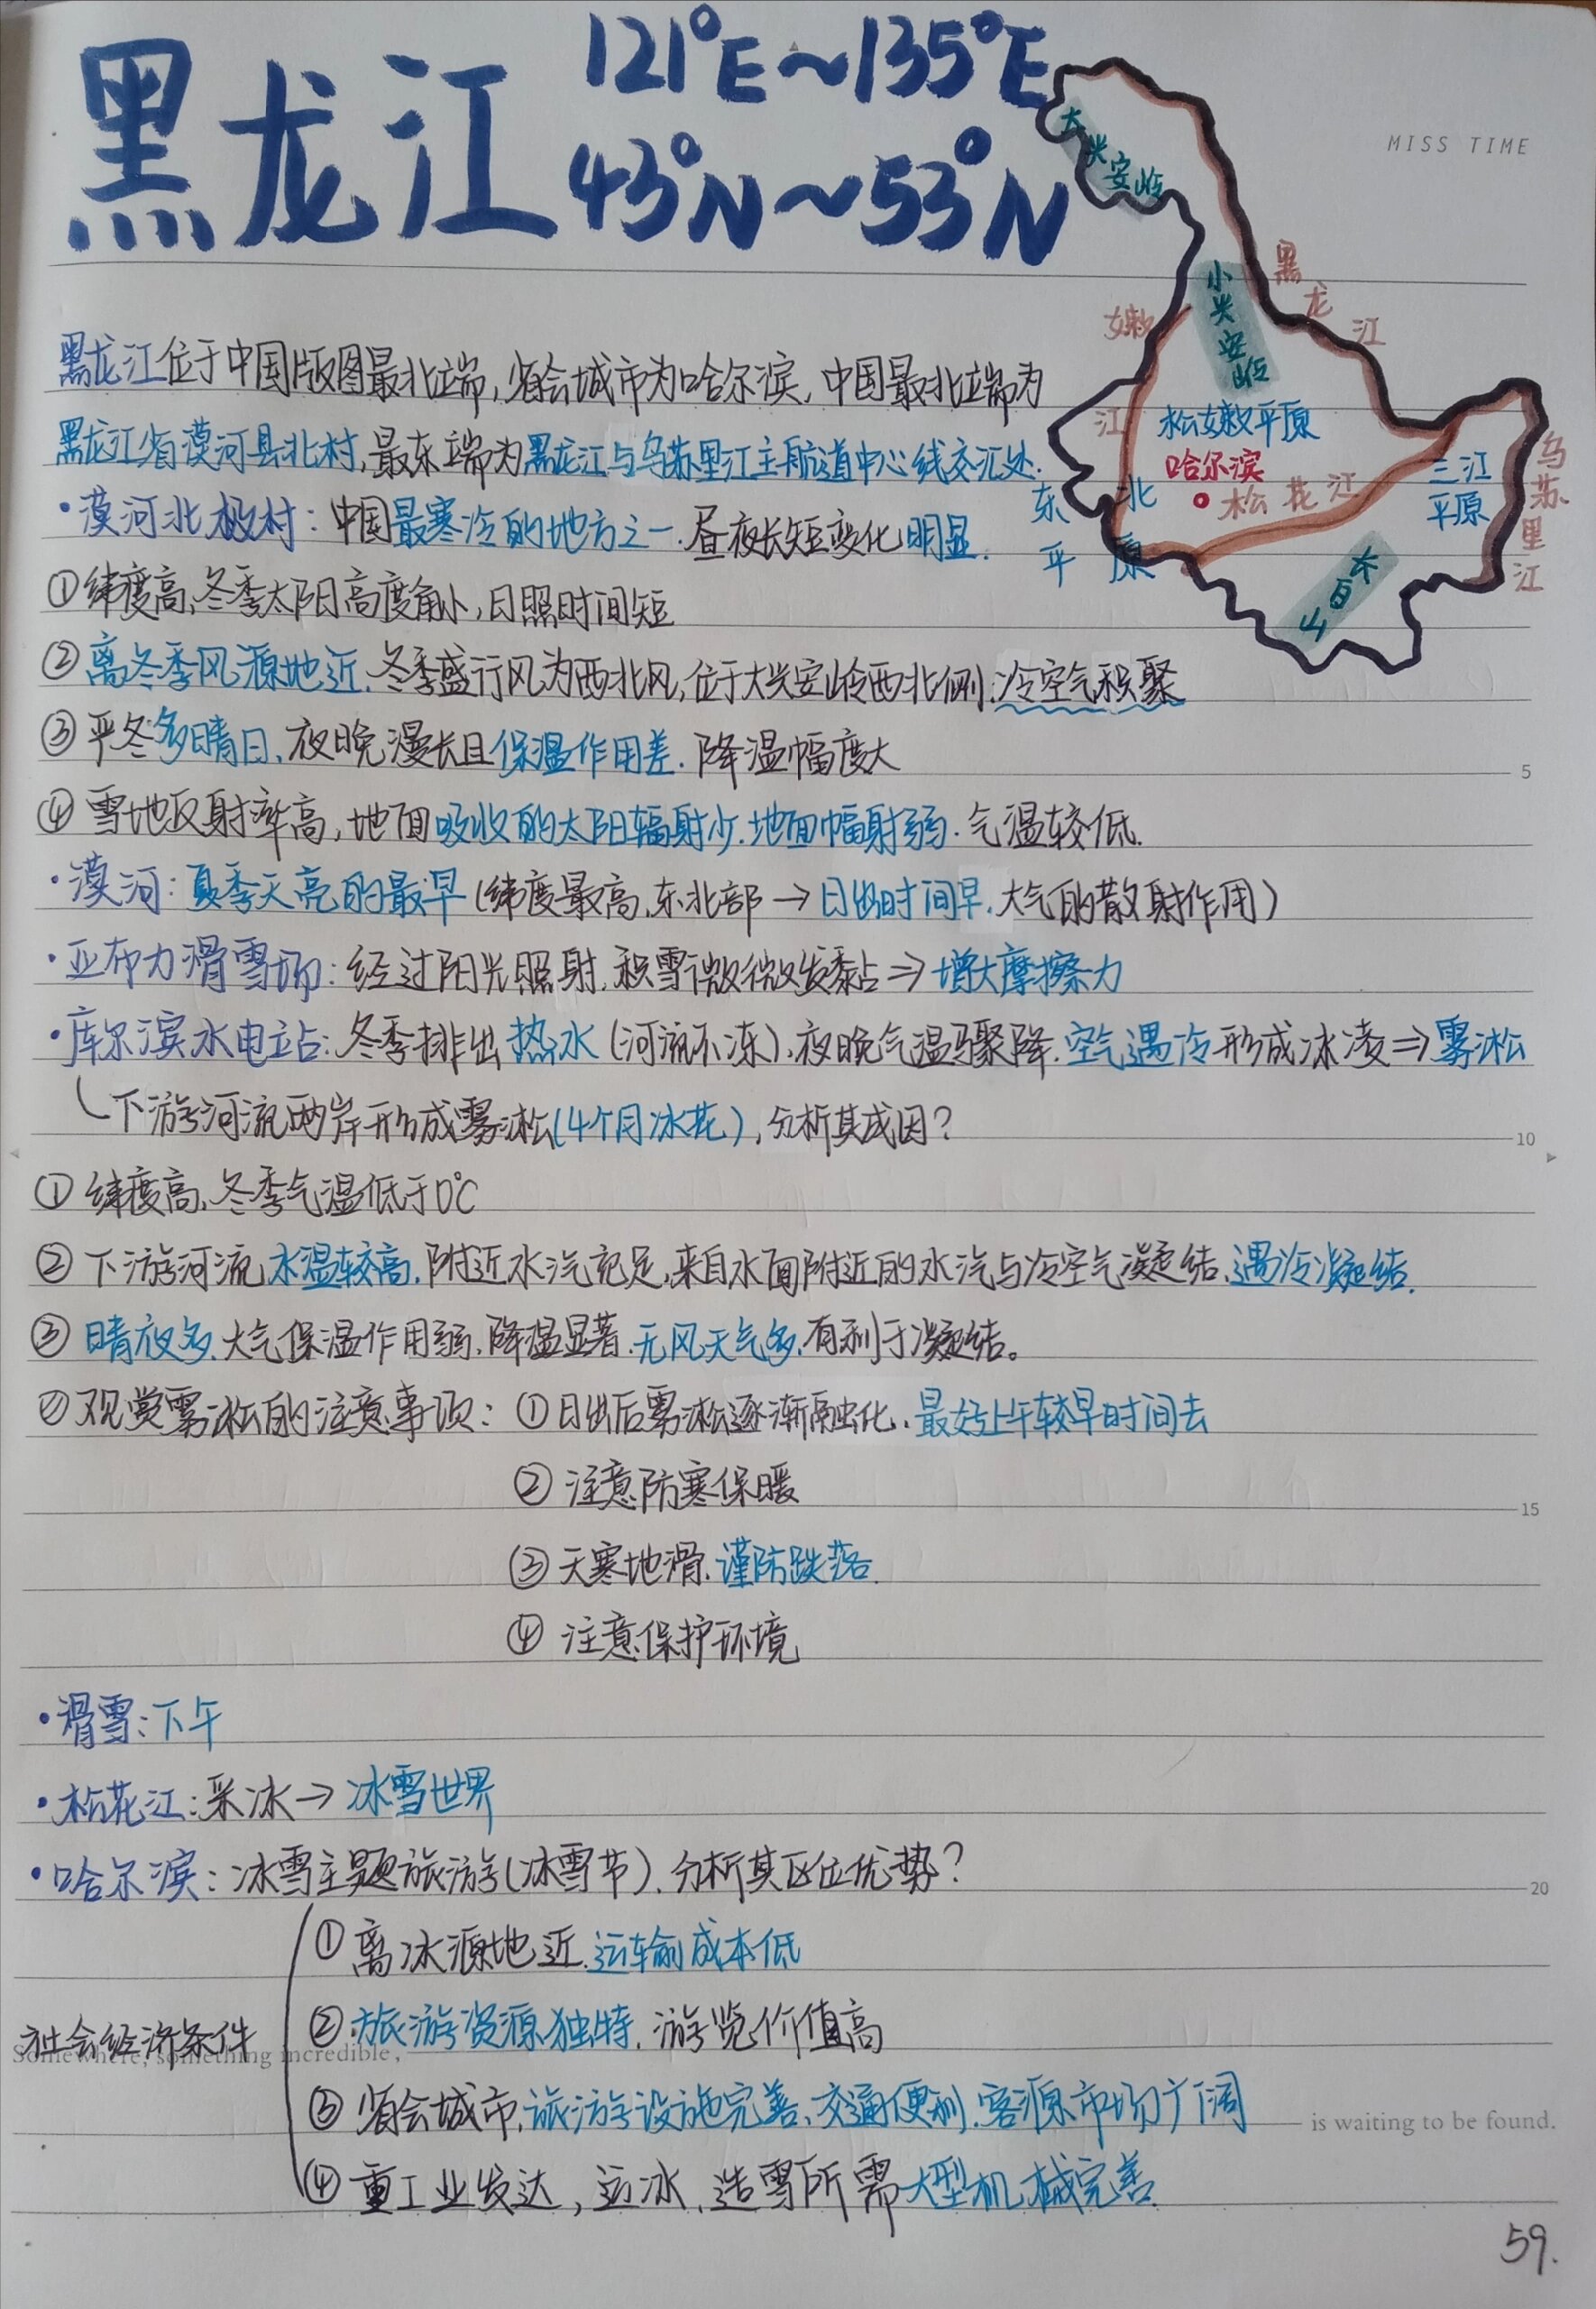 黑龙江
121°E～135°E
43°N～53°N
MISS TIME
大兴安岭
小兴安岭
黑龙江
嫩江
松嫩平原
哈尔滨
松花江
三江平原
乌苏里江
东北平原
长白山
黑龙江位于中国版图最北端,省会城市为哈尔滨,中国最北端为
黑龙江省漠河县北村,最东端为黑龙江与乌苏里江主航道中心线交汇处.
·漠河北极村:中国最寒冷的地方之一.昼夜长短变化明显.
①纬度高,冬季太阳高度角小,日照时间短
②离冬季风源地近.冬季盛行风为西北风,位于大兴安岭西北侧:冷空气积聚
③严冬多晴日,夜晚漫长且保温作用差.降温幅度大
④雪地反射率高,地面吸收的太阳辐射少.地面幅射弱.气温较低.
·漠河:夏季天亮的最早(纬度最高,东北部→日出时间早,大气的散射作用)
·亚布力滑雪场:经过阳光照射,积雪微微发黏⇒增大摩擦力
·库尔滨水电站:冬季排出热水(河流不冻),夜晚气温骤降.空气遇冷形成冰凌⇒雾淞
下游河流两岸形成雾淞(4个月冰花),分析其成因?
①纬度高,冬季气温低于0℃
②下游河流水温较高,附近水汽充足,来自水面附近的水汽与冷空气凝结,遇冷凝结.
③晴夜多,大气保温作用弱,降温显著.无风天气多,有利于凝结。
②观赏雾淞的注意事项:①日出后雾淞逐渐融化,最好上午较早时间去
②注意防寒保暖
③天寒地滑.谨防跌落.
④注意保护环境
·滑雪:下午
·松花江:采冰→冰雪世界
·哈尔滨:冰雪主题旅游(冰雪节),分析其区位优势?
①离冰源地近.运输成本低
社会经济条件
②旅游资源独特,游览价值高
Somewhere, something incredible,
③省会城市,旅游设施完善、交通便利.客源市场广阔
is waiting to be found.
④重工业发达,运冰、造雪所需大型机械完善.
5
10
15
20
59.